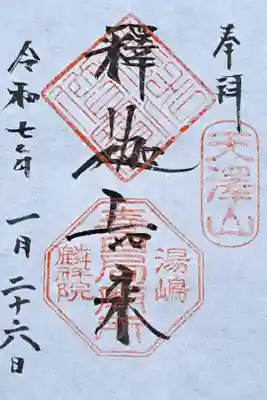 奉拝
天澤山
釋迦如来
湯嶋
麟祥院
令和七年 一月二十六日